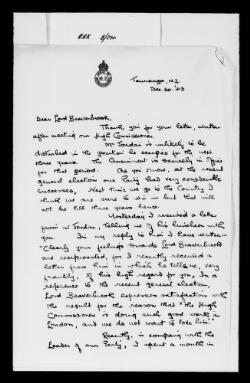 BBK
Tauranga, N.Z
Dec. 20. '43
Dear Lord Beaverbrook,
Thank you for your letter, written
after meeting our High Commissioner.
Mr Jordan is unlikely to be
disturbed in the position he occupies for the next
three years. The Government is securely in office
for that period. As you know, at the recent
general election our Party had very considerable
successes. Next time we go to the Country I
think we are sure to win - but that will
not be till three years hence.
Yesterday I received a letter
from W Jordan, telling me of his luncheon with
you. In my reply to him I have written -
"Clearly your feelings towards Lord Beaverbrook
are reciprocated, for I recently received a
letter from him in which he tells me, very
frankly, of his high regard for you. In a
reference to the recent general election,
Lord Beaverbrook expresses satisfaction with
the result for the reason that 'the High
Commissioner is doing such good work in
London, and we do not want to lose him'"
Recently, in company with the
Leader of our Party, I spent a month in